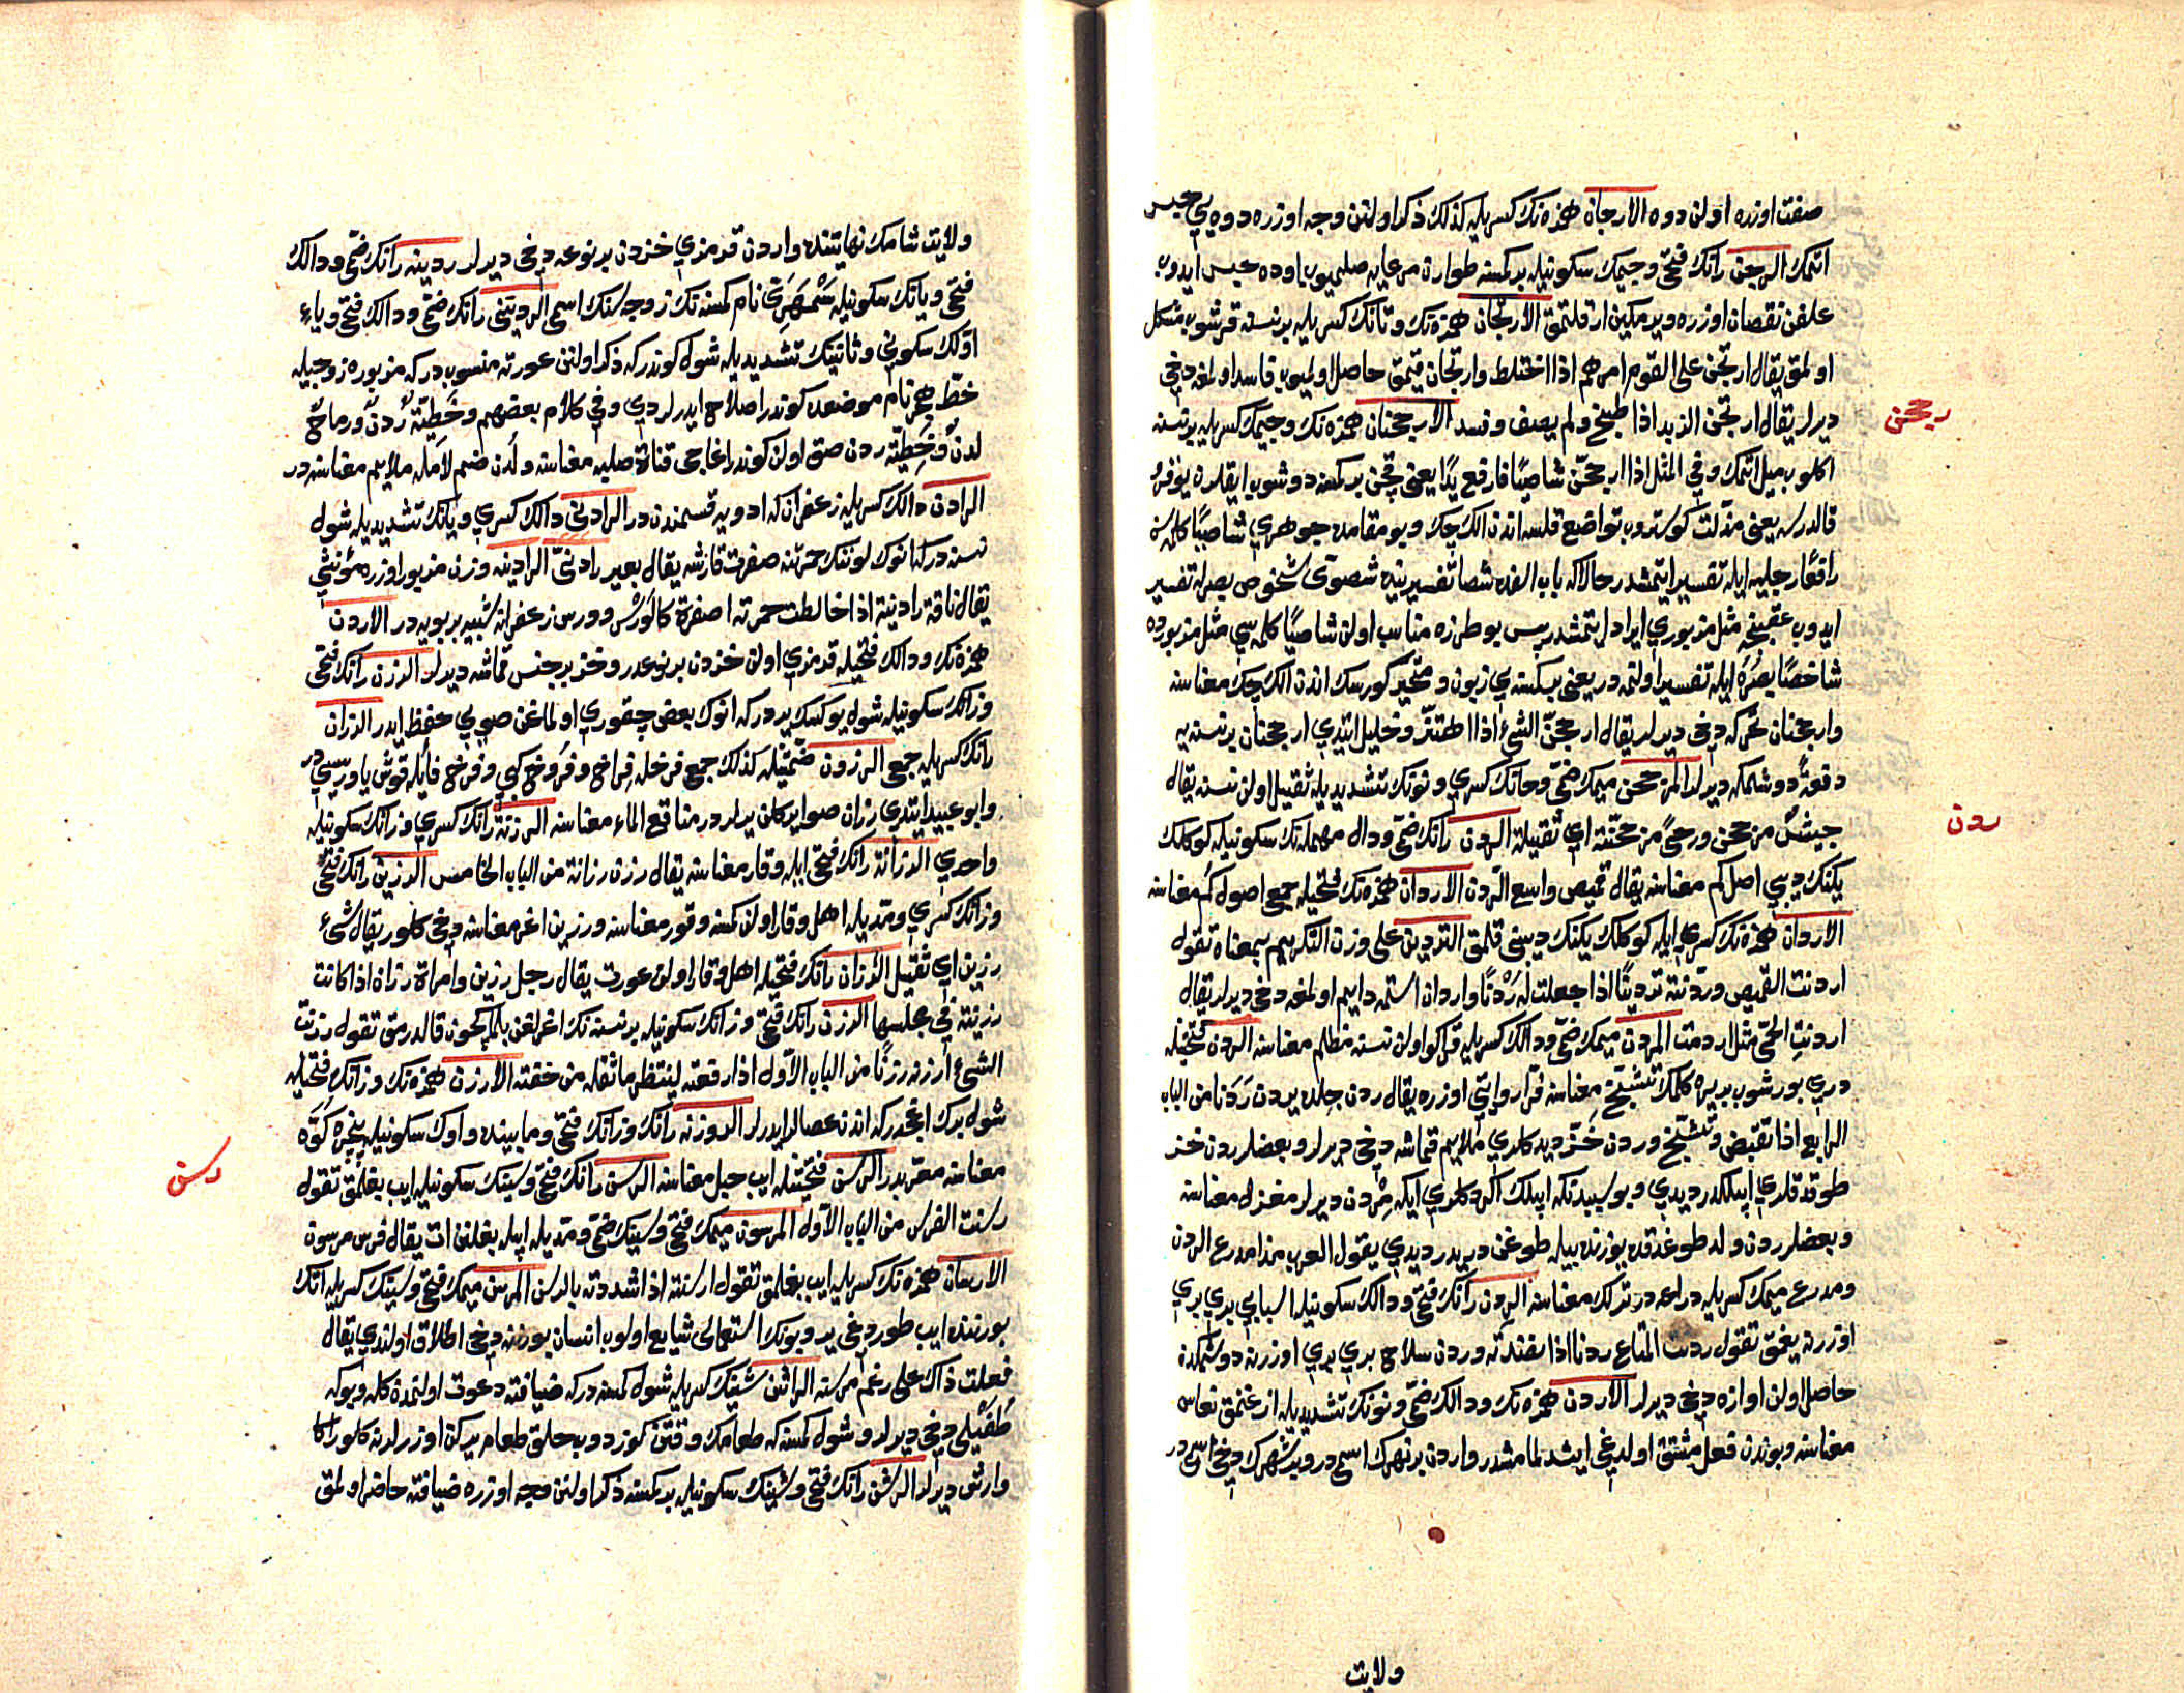 صفت اوزره اولن دوه الارجان همزه‌نك كسريله كذلك ذكر اولنن وجه اوزره دوه يي حبس
اتمك الرجن رانك فتحي وجيمك سكونيله بر كمسنه طوارن مرعايه صلميوب اوده حبس ايدوب
علفن نقصان اوزره ويرمكين ارقلتمق الارتجان همزه‌نك وتانك كسريله بر نسنه قرشوب مشكل
اولمق يقال ارتجن على القوم امرهم اذا اختلط وارتجان قيمق حاصل اولميوب فاسد اولمغه دخي
ديرلر يقال ارتجن الزبد اذا طبخ ولم يصف وفسد الارجحنان همزه‌نك وجيمك كسريله بر نسنه
رجحن
اكلوب ميل اتمك وفي المثل اذا ارجحن شاصيًا فارفع يدًا يعني قچن بر كمسنه دوشوب ايقلرن يوقرو
قالدرسه يعني مذلت كوستروب تواضع قلسه اندن الك چك وبو مقامده جوهري شاصيًا كلمه‌سن
رافعًا رجليه ايله تفسير ايتمشدر حالا كه باب الفده شصا تفسيرينده شصوى شخوص بصرله تفسير
ايدوب عقبنجه مثل مزبوري ايراد ايتمشدر پس بو طرزه مناسب اولن شاصيًا كلمه‌سي مثل مزبورده
شاخصًا بصره ايله تفسير اولنمه‌در يعني بر كمسنه يي زبون ومتحير كورسك اندن الك چك معناسنه
وارجحنان تحركه دخي ديرلر يقال ارجحن الشئ اذا اهتز وخليل ايتدي ارجحنان بر نسنه يه
دفعةً دوشمكه ديرلر المرجحن ميمك ضمي وحانك كسري ونونك تشديديله ثقيل اولن نسنه يقال
جيشٌ مرجحن ورحىً مرجحنة اي ثقيلة الردن رانك ضمي ودال مهمله‌نك سكونيله كوكلك
ردن
يكنك ديبي اصل كم معناسنه يقال قميص واسع الردن الاردان همزه‌نك فتحيله جمع اصول كم معناسنه
الاردان همزه‌نك كسري ايله كوكلك يكنك ديبني قلمق التردين على وزن التكريم بمعناه تقول
اردنت القميص وردنته تردينًا اذا جعلت له ردنًا واردان استمه دايم اولمغه دخي ديرلر يقال
اردنت الحمى مثل اردمت المردن ميمك ضمي ودالك كسريله قراكو اولن نسنه مظلم معناسنه الردن فتحتيله
دري بورشوب بريره كلمك تشنج معناسنه فرا روايتي اوزره يقال ردن جلده يردن ردنا من الباب
الرابع اذا تقبض وتشنج وردن خز ديدكلري ملايم قماشه دخي ديرلر وبعضلر ردن خز
طوقدقلري ايپلكدر ديدي وبو سببدنكه ايپلك اكردكلري ايكه مردن ديرلر مغزل معناسنه
وبعضلر ردن ولد طوغدقده يوزنده بيله طوغن دريدر ديدي يقول العرب هذا مدرع الردن
ومدرع ميمك كسريله دراعه در ترلك معناسنه الردن رانك فتحي ودالك سكونيله اسبابي بري بري
اوزرنه يغمق تقول ردنت المتاع ردنا اذا نضدته وردن سلاح بري بري اوزرنه دوشمكدن
حاصل اولن اوازه دخي ديرلر الاردن همزه‌نك ودالك ضمي ونونك تشديديله ازغنمق نعاس
معناسنه وبوندن فعل مشتق اولدغي ايشدلمامشدر واردن بر نهرك اسمي در وبر شهرك دخي اسمي در
ولايت
ولايت شامك نهايتنده واردن قرمزي خزدن بر نوعه دخي ديرلر ردينه رانك ضمي ودالك
فتحي ويانك سكونيله سمهري نام كمسنه‌نك زوجه‌سنك اسمي الرديني رانك ضمي ودالك فتحي وياء
اوّلك سكوني وثانينك تشديديله شول كوندركه ذكر اولنن عورته منسوب در كه مزبوره زوجيله
خط هجر نام موضعده كوندر اصلاح ايدرلردي وفي كلام بعضهم وخطيّة ردن ورماح
لدن وخطية ردن صق اولن كوندر اغاجي قناة صليه معناسنه ولدن ضم لامله ملايم معناسنه در
الرادن دالك كسريله زعفران كه ادويه قسمندن در الرادني دالك كسري ويانك تشديديله شول
نسنه در كه انوك لوننك حمرتنه صفرت قارشه يقال بعير رادني الرادينه وزن مزبور اوزره مؤنثي
يقال ناقة رادنية اذا خالطت حمرتها صفرة كالورس وورس زعفرانه شبيه بر بويه در الاردن
همزه‌نك ودالك فتحيله قرمزي اولن خزدن بر نوعدر وخز بر جنس قماشه ديرلر الرزن رانك فتحي
وزانك سكونيله شول يوكسك يردر كه انوك بعض چقوري اولماغن صويي حفظ ايدر الرزان
رانك كسريله جمع الرزون ضمتيله كذلك جمع فرخله فراخ وفروخ كبي وفرخ فا ايله قوش ياوريسي در
وابو عبيد ايتدي رزان صو ايركلن يرلر در مناقع الماء معناسنه الرزنة رانك كسري وزانك سكونيله
واحدي الرزانة رانك فتحي ايله وقار معناسنه يقال رزن رزانة من الباب الخامس الرزين رانك فتحي
وزانك كسري ومديله اهل وقار اولن كمسنه وقور معناسنه ورزين اغر معناسنه دخي كلور يقال شئ
رزين اي ثقيل الرزان رانك فتحيله اهل وقار اولن عورت يقال رجل رزين وامراة رزان اذا كانت
رزينة في مجلسها الرزن رانك فتحي وزانك سكونيله بر نسنه‌نك اغرلغن بلمكچون قالدرمق تقول رزنت
الشئ ارزنه رزنًا من الباب الاول اذا رفعته لينتظر ما ثقله من خفته الارزن همزه‌نك وزانك فتحيله
شول برك اغجدر كه اندن عصالر ايدرلر الروزنه رانك وزانك فتحي ومابينده واوك سكونيله پنجره كوّه
معناسنه معربدر الرسن فتحتيله ايپ حبل معناسنه الرسن رانك فتحي وسينك سكونيله ايپ بغلمق تقول
رسن
رسنت الفرس من الباب الاول المرسون ميمك فتحي وسينك ضمي ومديله ايپله بغلنن ات يقال فرس مرسون
الارسان همزه‌نك كسريله ايپ بغلمق تقول ارسنته اذا شددته بالرسن المرسن ميمك فتحي وسينك كسريله اتك
بورننده ايپ طوردغي ير وبونك استعمالى شايع اولوب انسان بورننه دخي اطلاق اولندي يقال
فعلت ذاك على رغم مرسنه الراشن شينك كسريله شول كمسنه در كه ضيافته دعوت اولنمدن كله وبوكه
طفيلي دخي ديرلر وشول كمسنه كه طعامك وقتن كوزدوب خلق طعام يركن اوزرلرنه كلور اكا
وارش ديرلر الرشن رانك فتحي وشينك سكونيله بر كمسنه ذكر اولنن وجه اوزره ضيافته حاضر اولمق